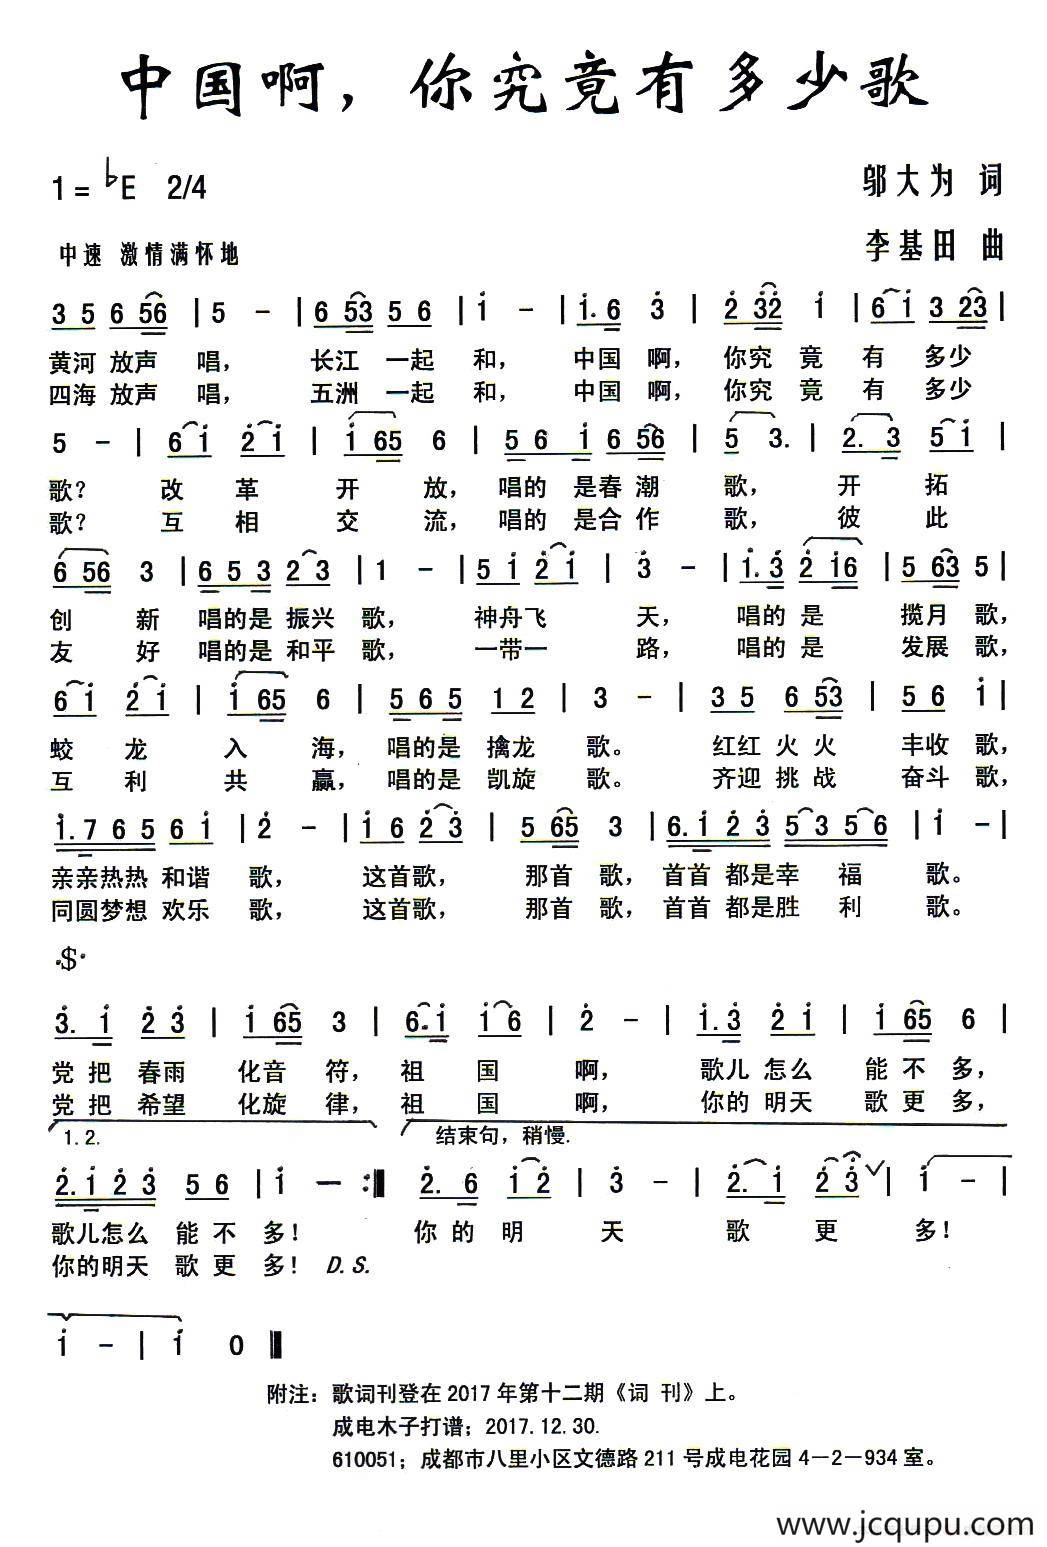 中国啊，你究竟有多少歌
1= ♭E 2/4
邬大为 词
中速 激情满怀地
李基田 曲
3 5 6 56 | 5 － | 6 53 5 6 | i － | i. 6 3 | 2 32 i | 6 i 3 23 |
黄河 放声 唱， 长江 一起 和， 中国 啊， 你究 竟 有 多少
四海 放声 唱， 五洲 一起 和， 中国 啊， 你究 竟 有 多少
5 － | 6 i 2 i | i 65 6 | 5 6 i 6 56 | 5 3. | 2. 3 5 i |
歌？ 改 革 开 放， 唱的 是春 潮 歌， 开 拓
歌？ 互 相 交 流， 唱的 是合 作 歌， 彼 此
6 56 3 | 6 5 3 2 3 | 1 － | 5 i 2 i | 3 － | i. 3 2 i6 | 5 63 5 |
创 新 唱的是 振兴 歌， 神舟飞 天， 唱的 是 揽月 歌，
友 好 唱的是 和平 歌， 一带一 路， 唱的 是 发展 歌，
6 i 2 i | i 65 6 | 5 6 5 1 2 | 3 － | 3 5 6 53 | 5 6 i |
蛟 龙 入 海， 唱的是 擒龙 歌。 红红 火 火 丰收 歌，
互 利 共 赢， 唱的是 凯旋 歌。 齐迎 挑 战 奋斗 歌，
i. 7 6 5 6 i | 2 － | i 6 2 3 | 5 65 3 | 6. i 2 3 5 3 5 6 | i － |
亲亲热热 和谐 歌， 这首歌， 那首 歌， 首首 都是幸 福 歌。
同圆梦想 欢乐 歌， 这首歌， 那首 歌， 首首 都是胜 利 歌。
·$·
3. i 2 3 | i 65 3 | 6. i i 6 | 2 － | i. 3 2 i | i 65 6 |
党 把 春雨 化音 符， 祖 国 啊， 歌儿 怎么 能 不 多，
党 把 希望 化旋 律， 祖 国 啊， 你的 明天 歌 更 多，
1. 2. 结束句，稍慢.
2. i 2 3 5 6 | i － :‖ 2. 6 i 2 | 3 － | 2. i 2 3 ∨ | i － |
歌儿怎么 能 不 多！ 你 的 明 天 歌 更 多！
你的明天 歌 更 多！ D.S.
i － | i 0 ‖
附注：歌词刊登在 2017 年第十二期《词 刊》上。
成电木子打谱；2017.12.30.
610051；成都市八里小区文德路 211 号成电花园 4－2－934 室。
www.jcqupu.com